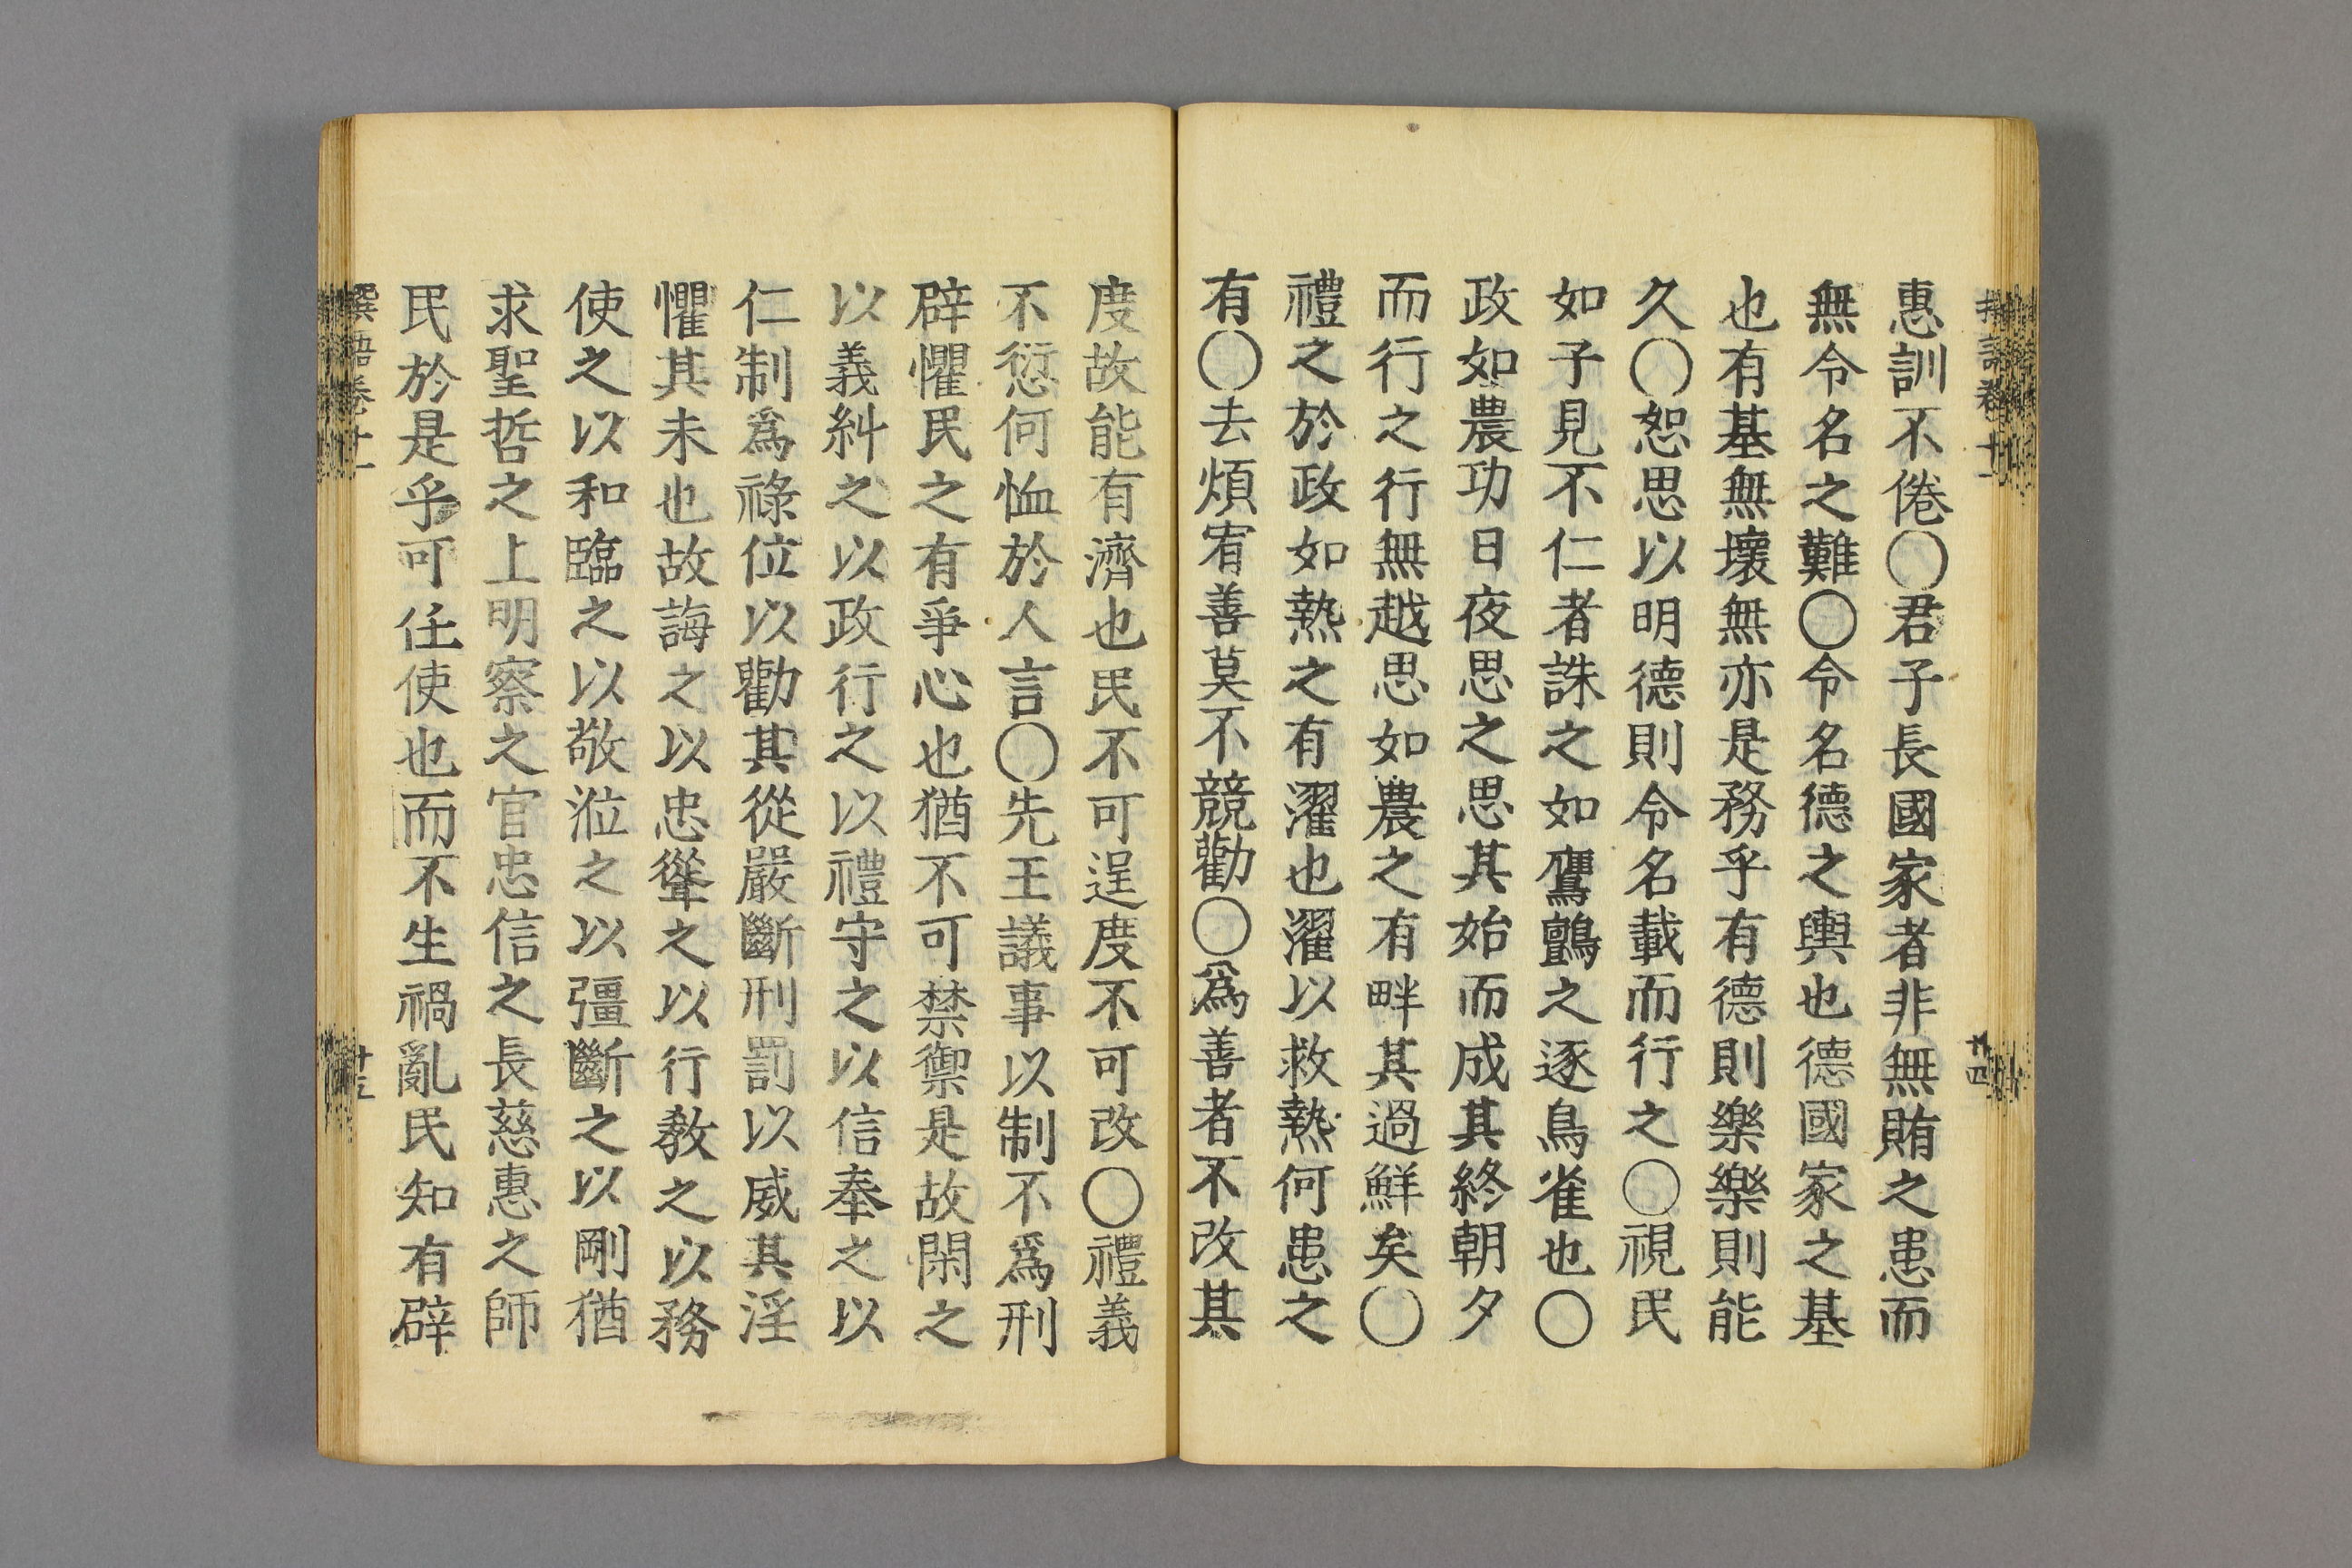 惠訓不倦〇君子長國家者非無賄之患而
無令名之難〇令名德之輿也德國家之基
也有基無壞無亦是務乎有德則樂樂則能
久〇恕思以明德則令名載而行之〇視民
如子見不仁者誅之如鷹鸇之逐鳥雀也〇
政如農功日夜思之思其始而成其終朝夕
而行之行無越思如農之有畔其過鮮矣〇
禮之於政如熱之有濯也濯以救熱何患之
有〇去煩宥善莫不競勸〇爲善者不改其
度故能有濟也民不可逞度不可改〇禮義
不愆何恤於人言〇先王議事以制不爲刑
辟懼民之有爭心也猶不可禁禦是故閑之
以義糾之以政行之以禮守之以信奉之以
仁制爲祿位以勸其從嚴斷刑罰以威其淫
懼其未也故誨之以忠聳之以行敎之以務
使之以和臨之以敬涖之以彊斷之以剛猶
求聖哲之上明察之官忠信之長慈惠之師
民於是乎可任使也而不生禍亂民知有辟
撰語卷十一
十五